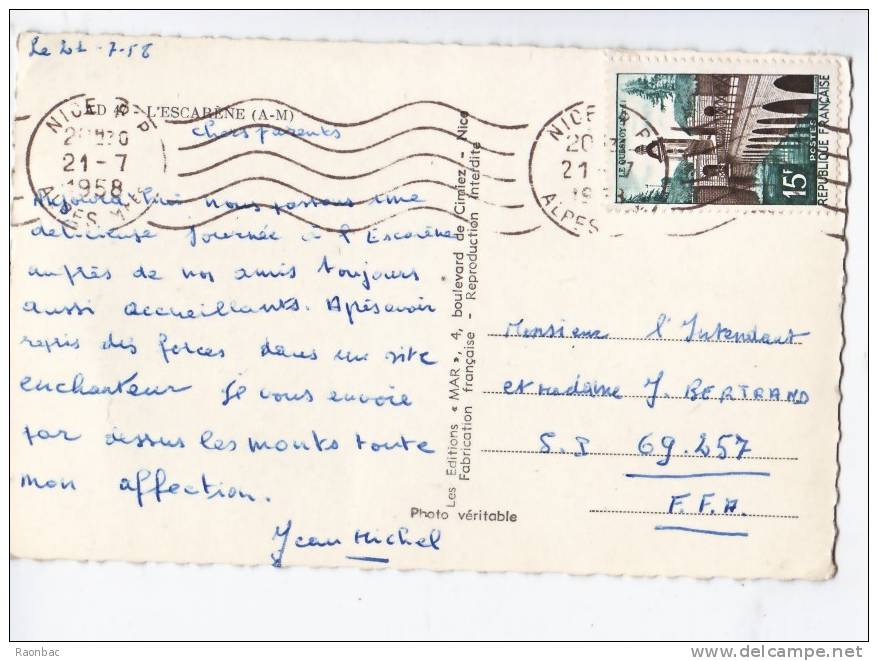 Le 21-7-58
AD 4 - L'ESCARÈNE (A-M)
NICE R PL
21-7
1958
ALPES MMES
NICE R PL
20
21 - 7
19
ALPES
LE QUESNOY
15F
POSTES
REPUBLIQUE FRANÇAISE
Chers parents
Aujourd'hui nous passons une
délicieuse journée à l'Escarène
auprès de nos amis toujours
aussi accueillants. Après avoir
repris des forces dans un site
enchanteur je vous envoie
par dessus les monts toute
mon affection.
Jean Michel
Les Editions « MAR », 4, boulevard de Cimiez - Nice
Fabrication française - Reproduction Interdite
Photo véritable
Monsieur l'Intendant
et Madame J. BERTRAND
S.I 69.257
F.F.A.
Posted by
Raonbac
delcampe.net